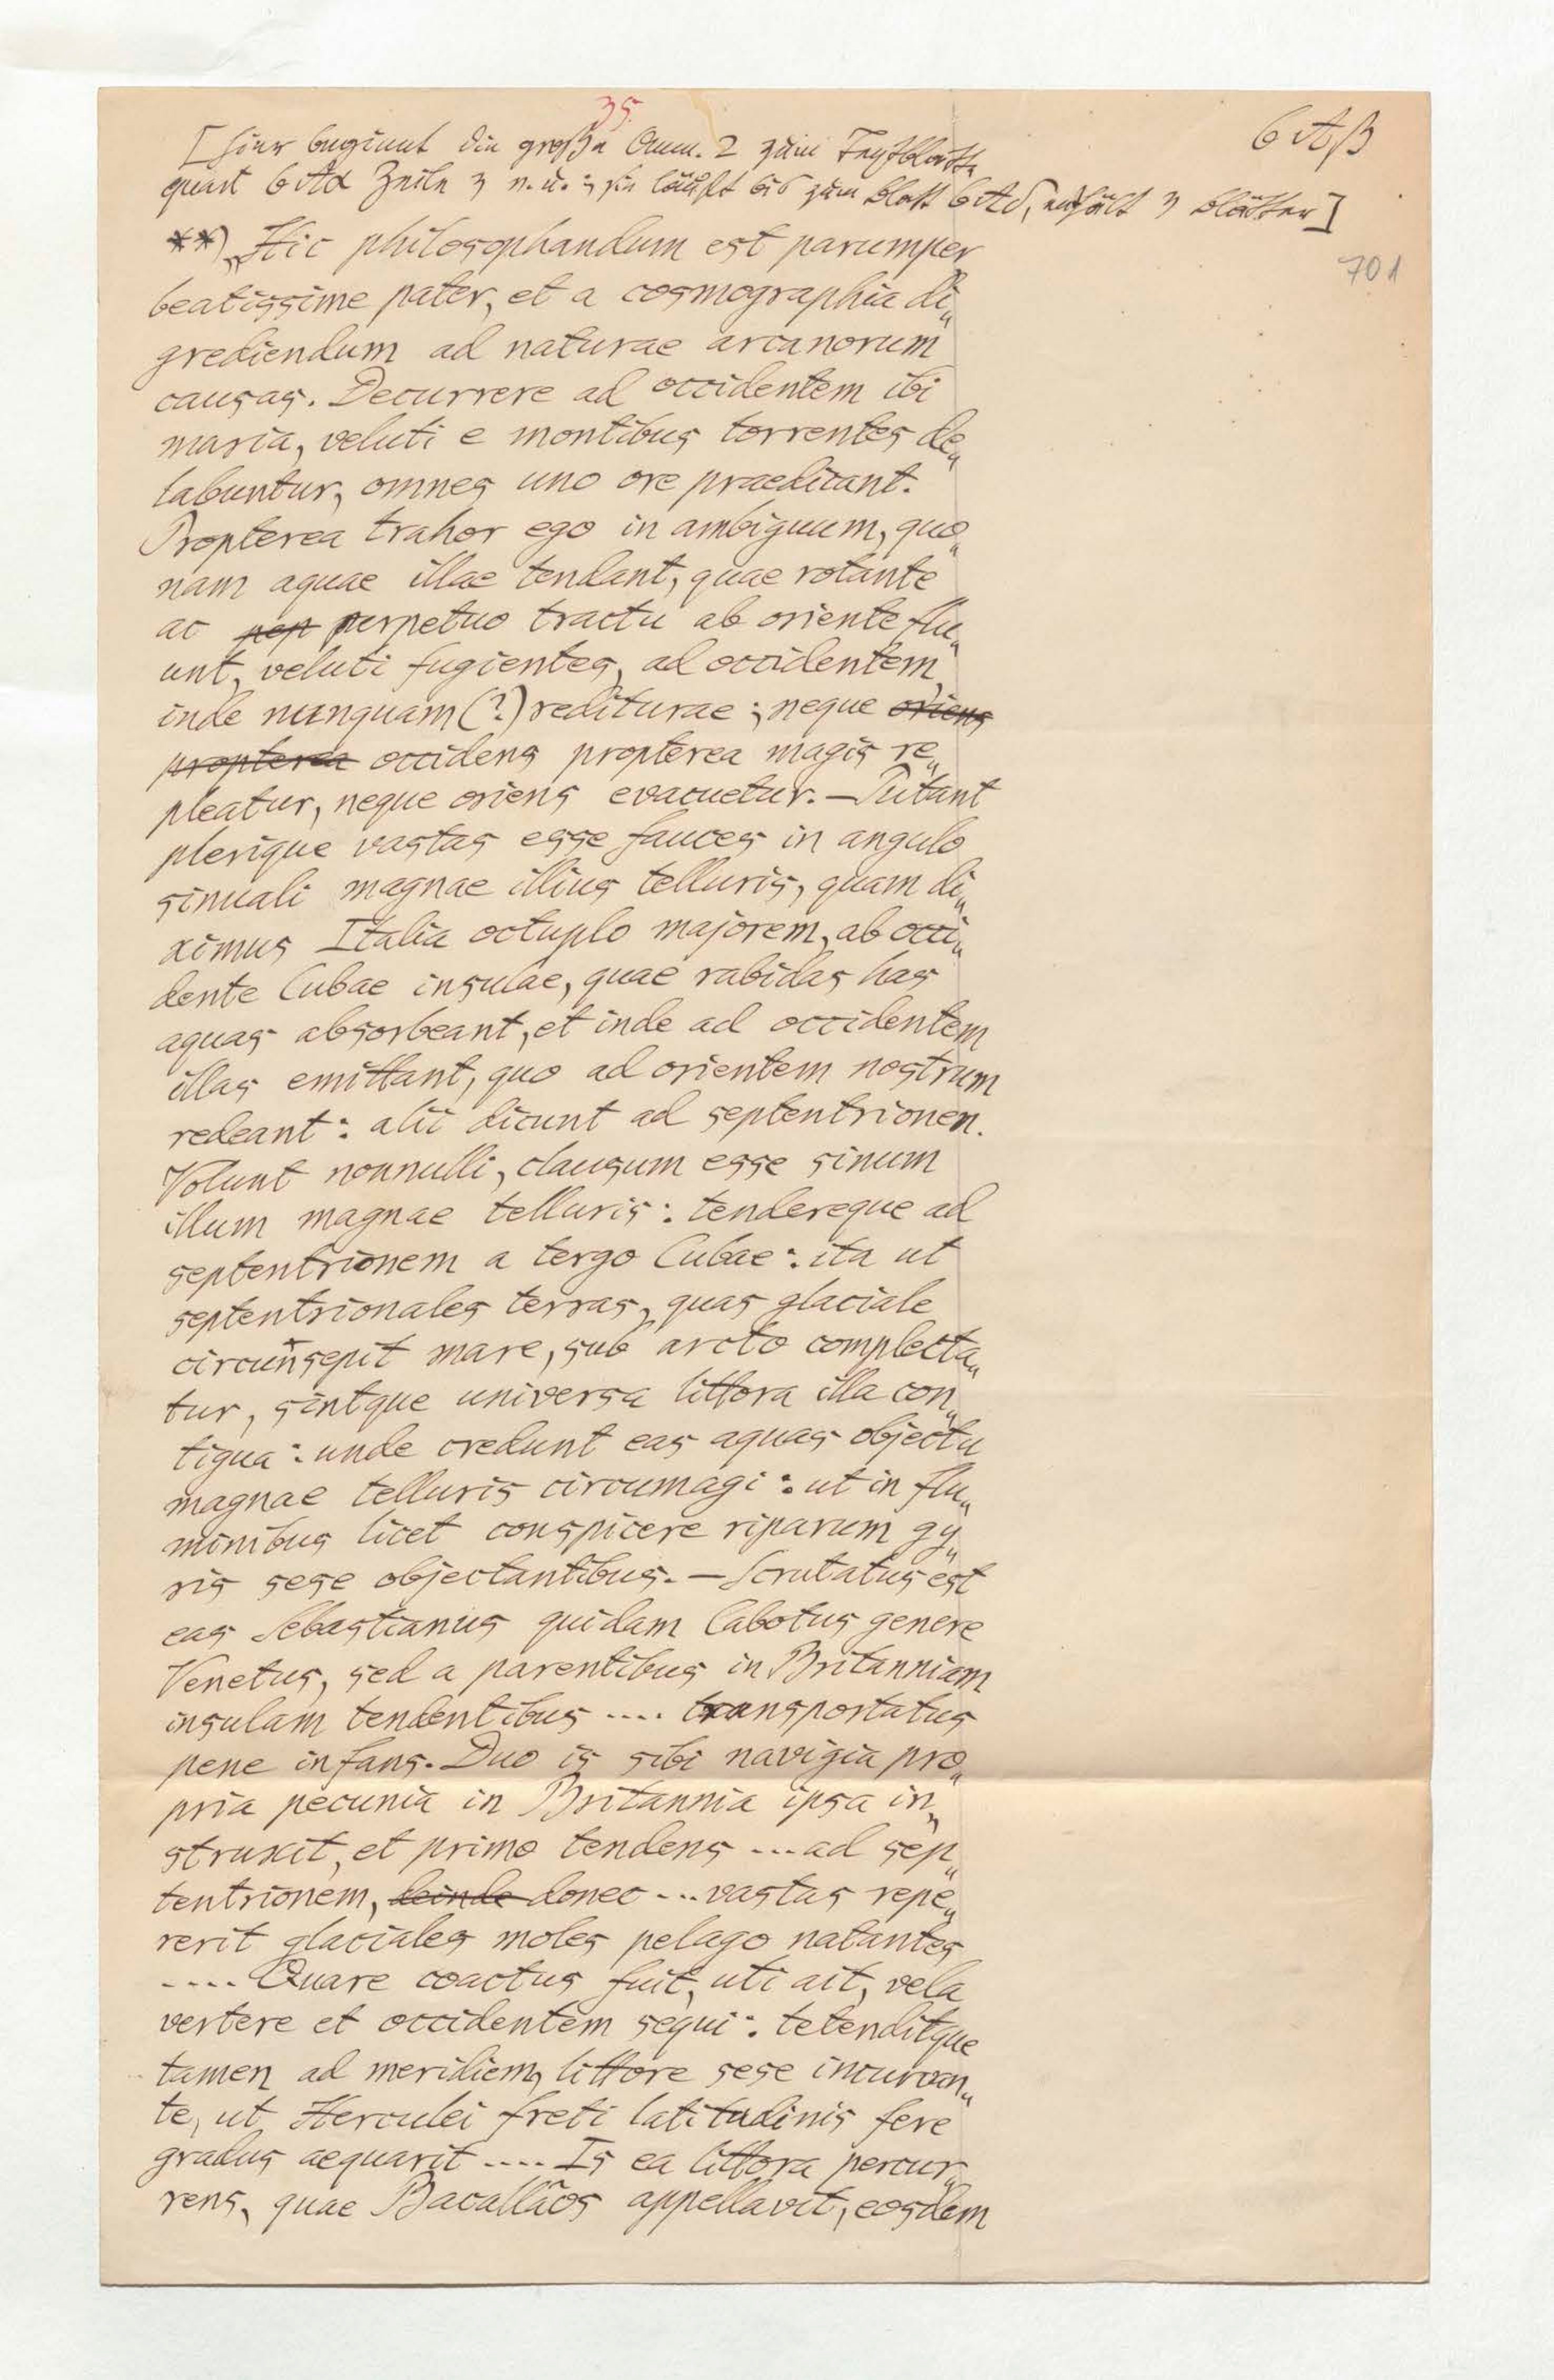 35.
6 Aβ
[Hier beginnt die große Anm. 2 zum Textblatte
quart 6 Aα Zeile 3 v. u.; sie läuft bis zum Blatt 6 Aδ, enthält 3 Blätter]
701
**) „Hic philosophandum est parumper
beatissime pater, et a cosmographia di„
grediendum ad naturae arcanorum
causas. Decurrere ad occidentem ibi
maria, veluti e montibus torrentes de„
labuntur, omnes uno ore praedicant.
Propterea trahor ego in ambiguum, quo„
nam aquae illae tendant, quae rotante
ac pep perpetuo tractu ab oriente flu„
unt, veluti fugientes, ad occidentem,
inde nunquam (?) rediturae; neque oriens
propterea occidens propterea magis re„
pleatur, neque oriens evacuetur. — Putant
plerique vastas esse fauces in angulo
sinuali magnae illius telluris, quam di„
ximus Italia octuplo majorem, ab occi„
dente Cubae insulae, quae rabidas has
aquas absorbeant, et inde ad occidentem
illas emittant, quo ad orientem nostrum
redeant: alii dicunt ad septentrionem.
Volunt nonnulli, clausum esse sinum
illum magnae telluris: tendereque ad
septentrionem a tergo Cubae: ita ut
septentrionales terras, quas glaciale
circumsepit mare, sub arcto complecta„
tur, sintque universa littora illa con„
tigua: unde credunt eas aquas objectu
magnae telluris circumagi: ut in flu„
minibus licet conspicere riparum gy„
ris sese objectantibus. — Scrutatus est
eas Sebastianus quidam Cabotus genere
Venetus, sed a parentibus in Britanniam
insulam tendentibus .... transportatus
pene infans. Duo is sibi navigia pro„
pria pecunia in Britannia ipsa in„
struxit, et primo tendens ... ad sep„
tentrionem, deinde donec ... vastas repe„
rerit glaciales moles pelago natantes
.... Quare coactus fuit, uti ait, vela
vertere et occidentem sequi: tetenditque
tamen ad meridiem, littore sese incurvan„
te, ut Herculei freti latitudinis fere
gradus aequarit .... Is ea littora percur„
rens, quae Bacallãos appellavit, eosdem